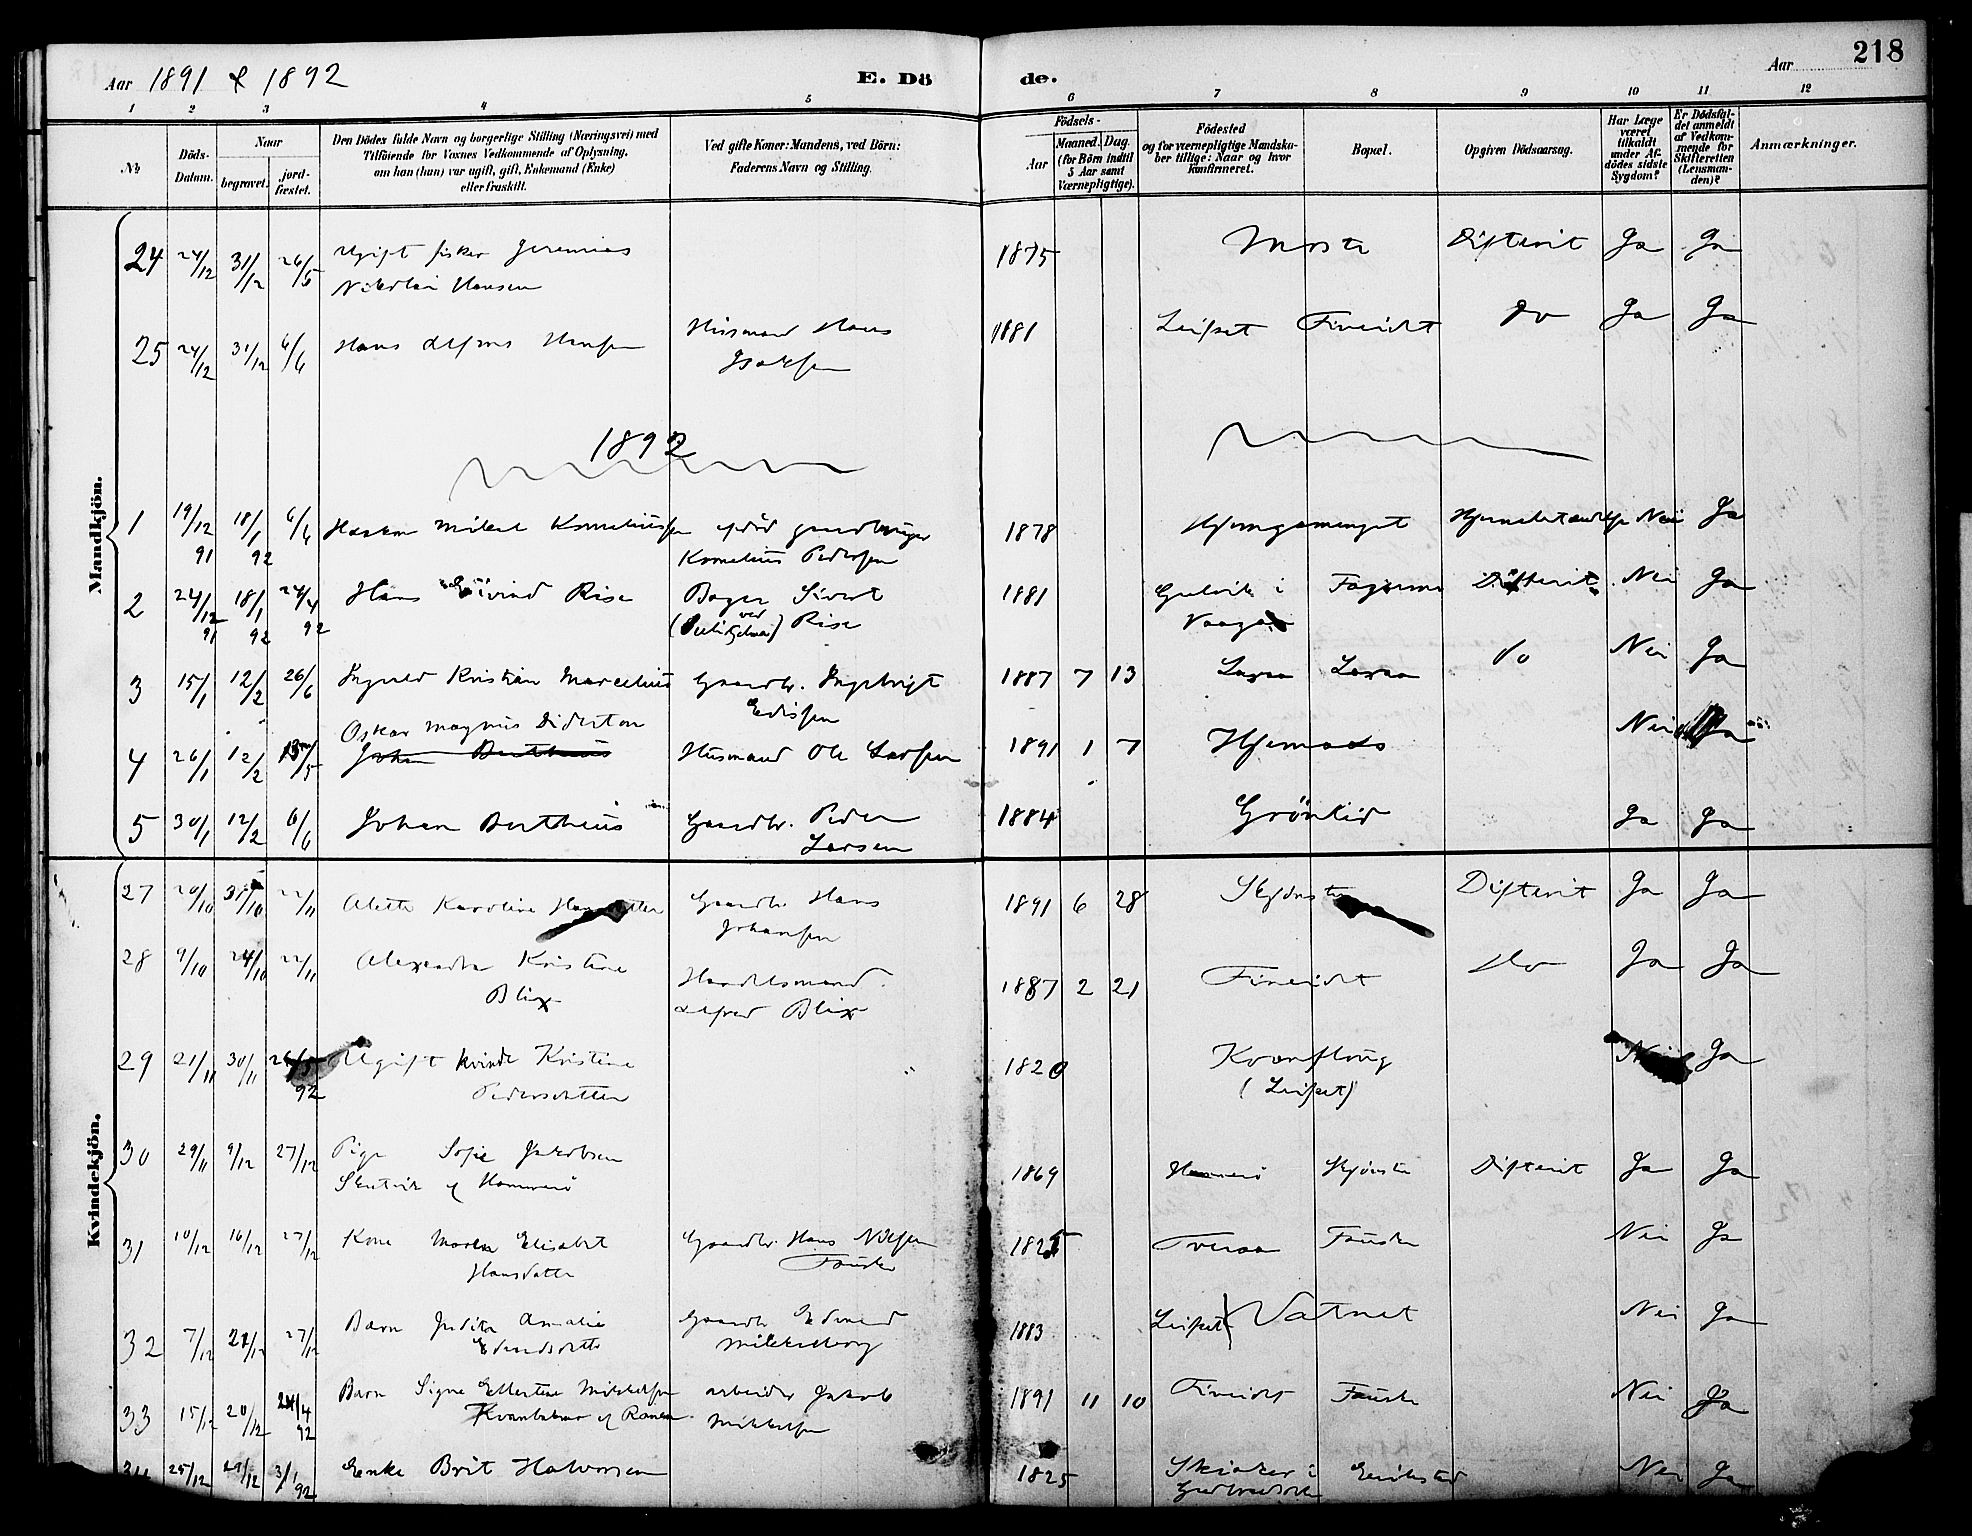 218
Aar 1891 & 1892 E. Dö de. Aar
1 2 3 4 5 6 7 8 9 10 11 12
No Döds-Datum. Naar begravet. jord-fæstet.
Den Dödes fulde Navn og borgerlige Stilling (Næringsvei) med
Tilföiende for Voxnes Vedkommende af Oplysning,
om han (hun) var ugift, gift, Enkemand (Enke)
eller fraskilt.
Ved gifte Koner: Mandens, ved Börn:
Faderens Navn og Stilling.
Födsels-
Aar Maaned. Dag.
(for Börn indtil
5 Aar samt
Værnepligtige).
Födested
og for værnepligtige Mandska-
ber tillige: Naar og hvor
konfirmeret.
Bopæl.
Opgiven Dödsaarsag.
Har Læge
været
tilkaldt
under Af-
dödes sidste
Sygdom?
Er Dödsfal-
det anmeldt
af Vedkom-
mende for
Skifteretten
(Lensman-
den)?
Anmærkninger.
Mandkjön.
24 24/12 31/12 26/5 Ugift fisker Jeremias 1875 Mosti Difterit Ja Ja
Nikolai Hansen
25 24/12 31/12 6/6 Hans Alfons Hansen Husmand Hans 1881 Leifset Fineidet do Ja Ja
Isaksen
1892
1 19/12 91 18/1 92 6/6 Haakon Mikal Korneliussen afdöd gaardbruger 1878 Hjemgammget Nei Ja
Kornelius Pedersen
2 24/12 91 18/1 92 24/4 92 Hans Eivind Rise Bager Sivert 1881 Gulvik i Difterit Nei Ja
Rise Vaagan
3 15/1 12/2 26/6 Ingvald Kristian Marcelius Gaardbr. Ingebrigt 1887 7 13 Laxaa Laxaa do Nei Ja
Oskar Magnus Didrikon
4 26/1 12/2 15/5 Johan Berthius Husmand Ole Larsen 1891 1 7 Hjemaas Nei Ja
5 30/1 12/2 6/6 Johan Berthius Gaardbr. Peder 1884 Grönlid Ja Ja
Larsen
Kvindekjön.
27 20/10 31/10 22/11 Alette Karoline Hansdatter Gaardbr Hans 1891 6 28 Skjönsta Difterit Ja Ja
Johansen
28 9/10 24/10 22/11 Alexandra Kristine Handelsmand 1887 2 21 Fineidet do Ja Ja
Blix Alfred Blix
29 21/11 30/11 26/5 92 Ugift kvinde Kristine 1820 Kvænflaug Nei Ja
Pedersdatter (Leifset)
30 29/11 9/12 27/12 Pige Sofie Jakobsen 1869 Hammerö Skjönsta Difterit Ja Ja
Skutvik af Hammerö
31 10/12 16/12 27/12 Kone Marta Elisabet Gaardbr. Hans Nilssen 1825 Tveraa Fauske Nei Ja
Hansdatter Fauske
32 7/12 21/12 27/12 Barn Judita Amalie Gaardbr Edvard 1883 Leifset Vatnet Nei Ja
Mikkelborg
33 15/12 20/12 24/4 92 Barn Signe Ellertine Mikkelsen arbeider Jakob 1891 11 10 Fineidet Fauske Nei Ja
af Ranen Mikkelsen
34 25/12 29/12 3/1 92 Enke Brit Halvorsen 1825 Skiaker i Nei Ja
Gudbrandsdalen